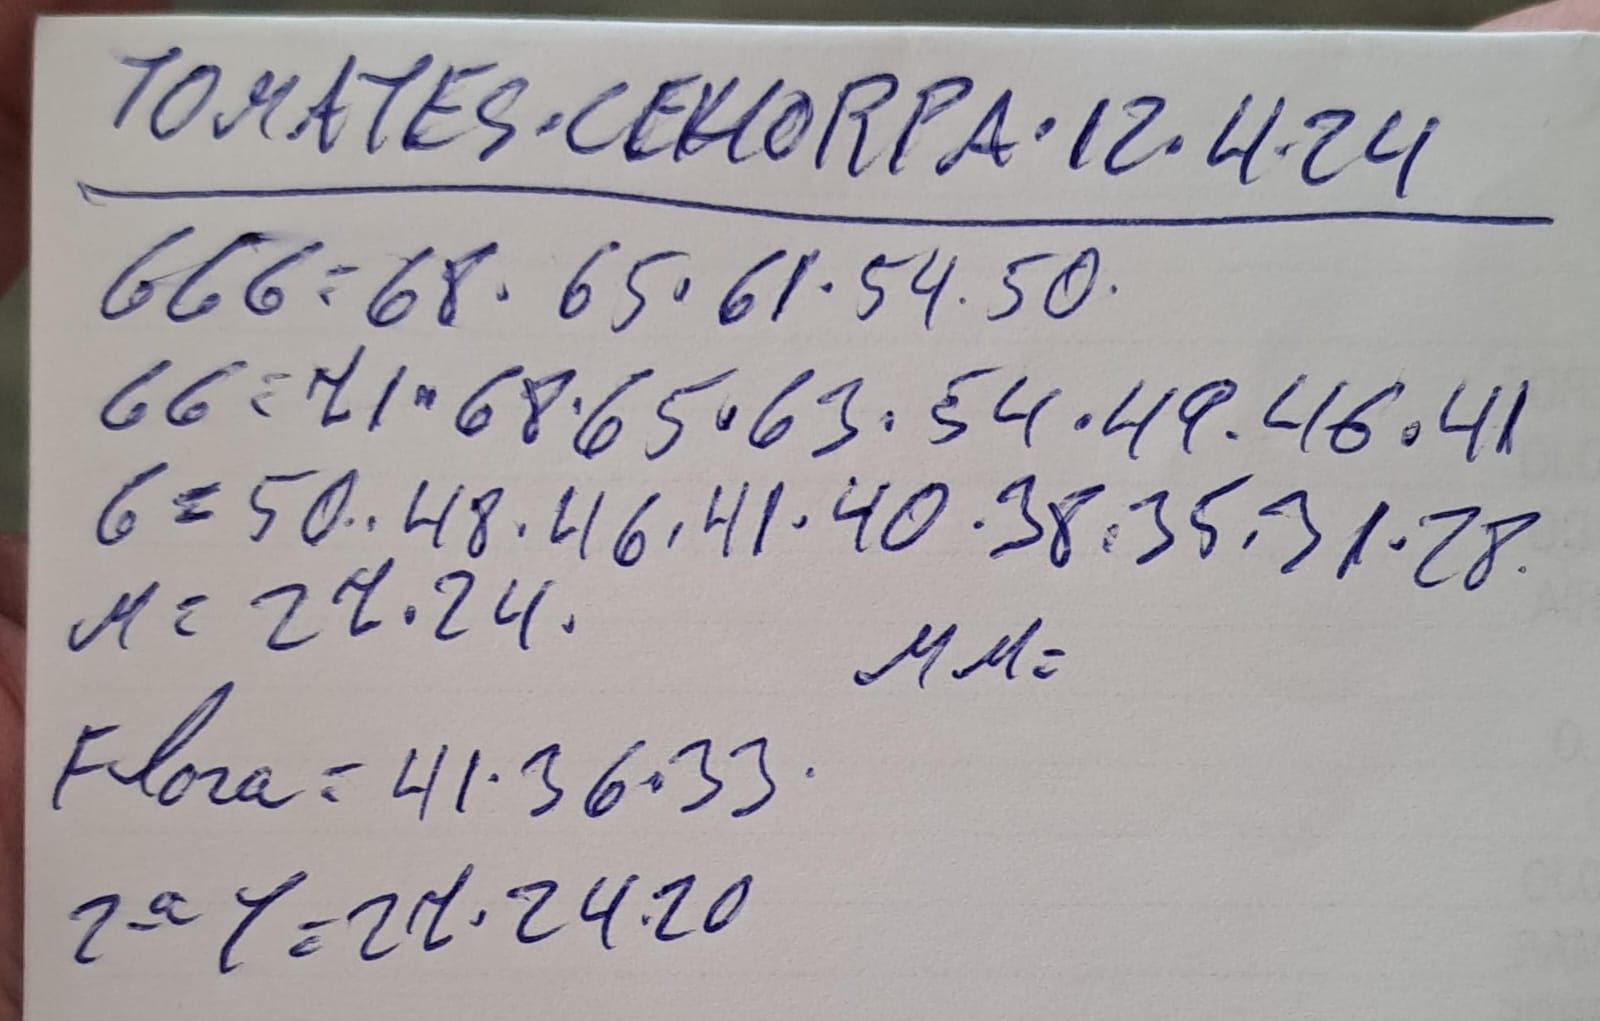 TOMATES.CEHORPA.12.4.24
GGG=68.65.61.54.50.
GG=71.68.65.63.54.49.46.41
G=50.48.46.41.40.38.35.31.28.
M=27.24. MM=
Flora=41.36.33.
2ª Y=27.24.20